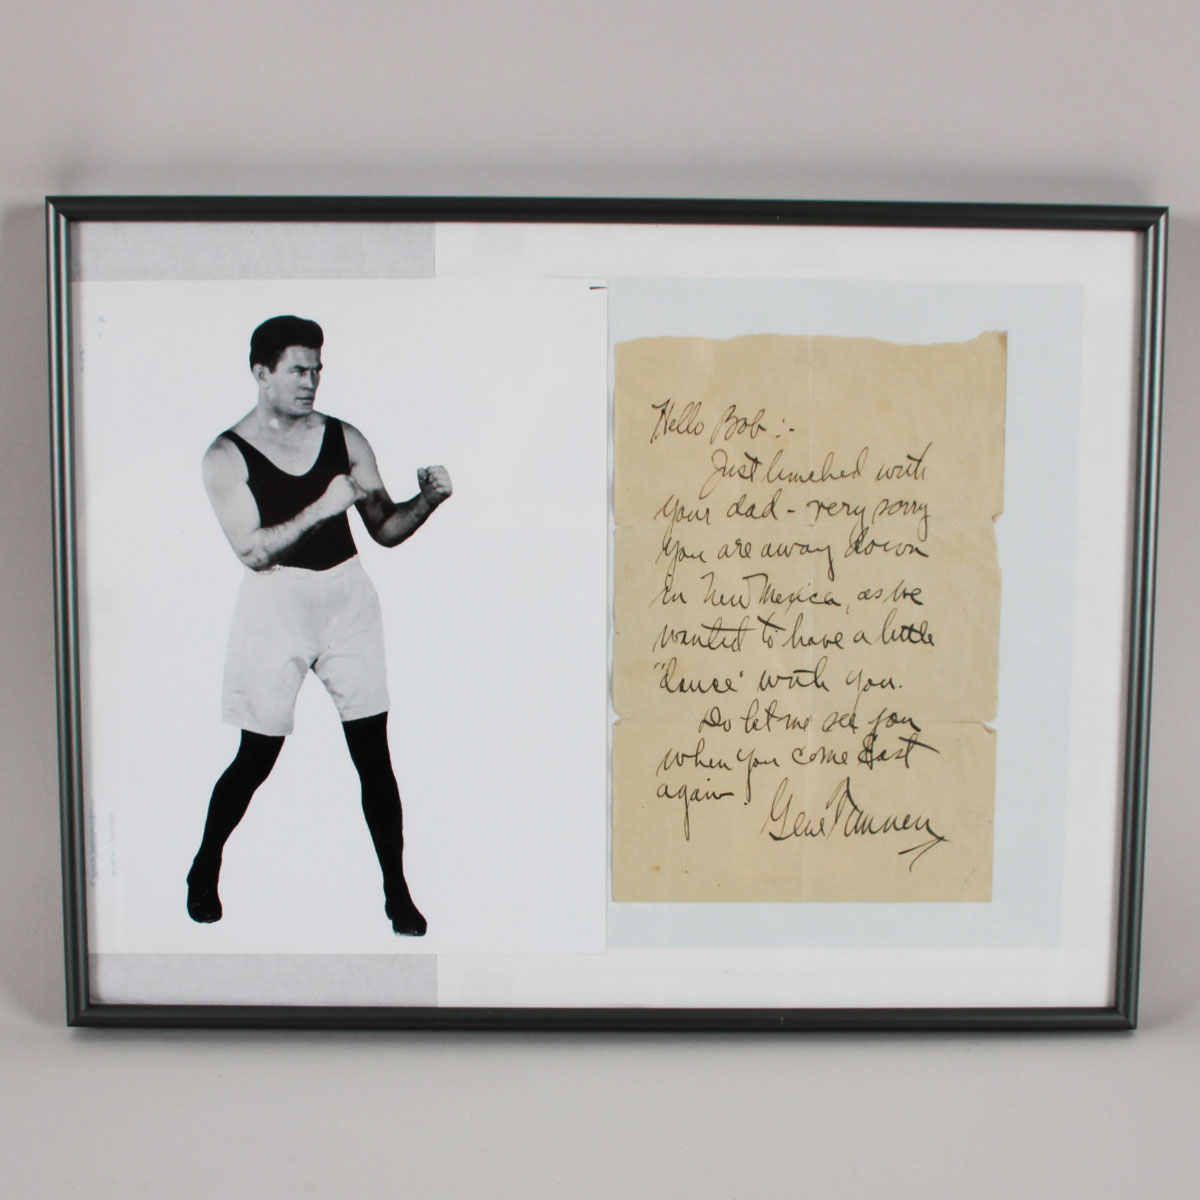 Hello Bob :-
Just lunched with
your dad - very sorry
you are away down
in New Mexica, as we
wanted to have a little
"dance" with you.
Do let me see you
when you come East
again.
Gene Tunney